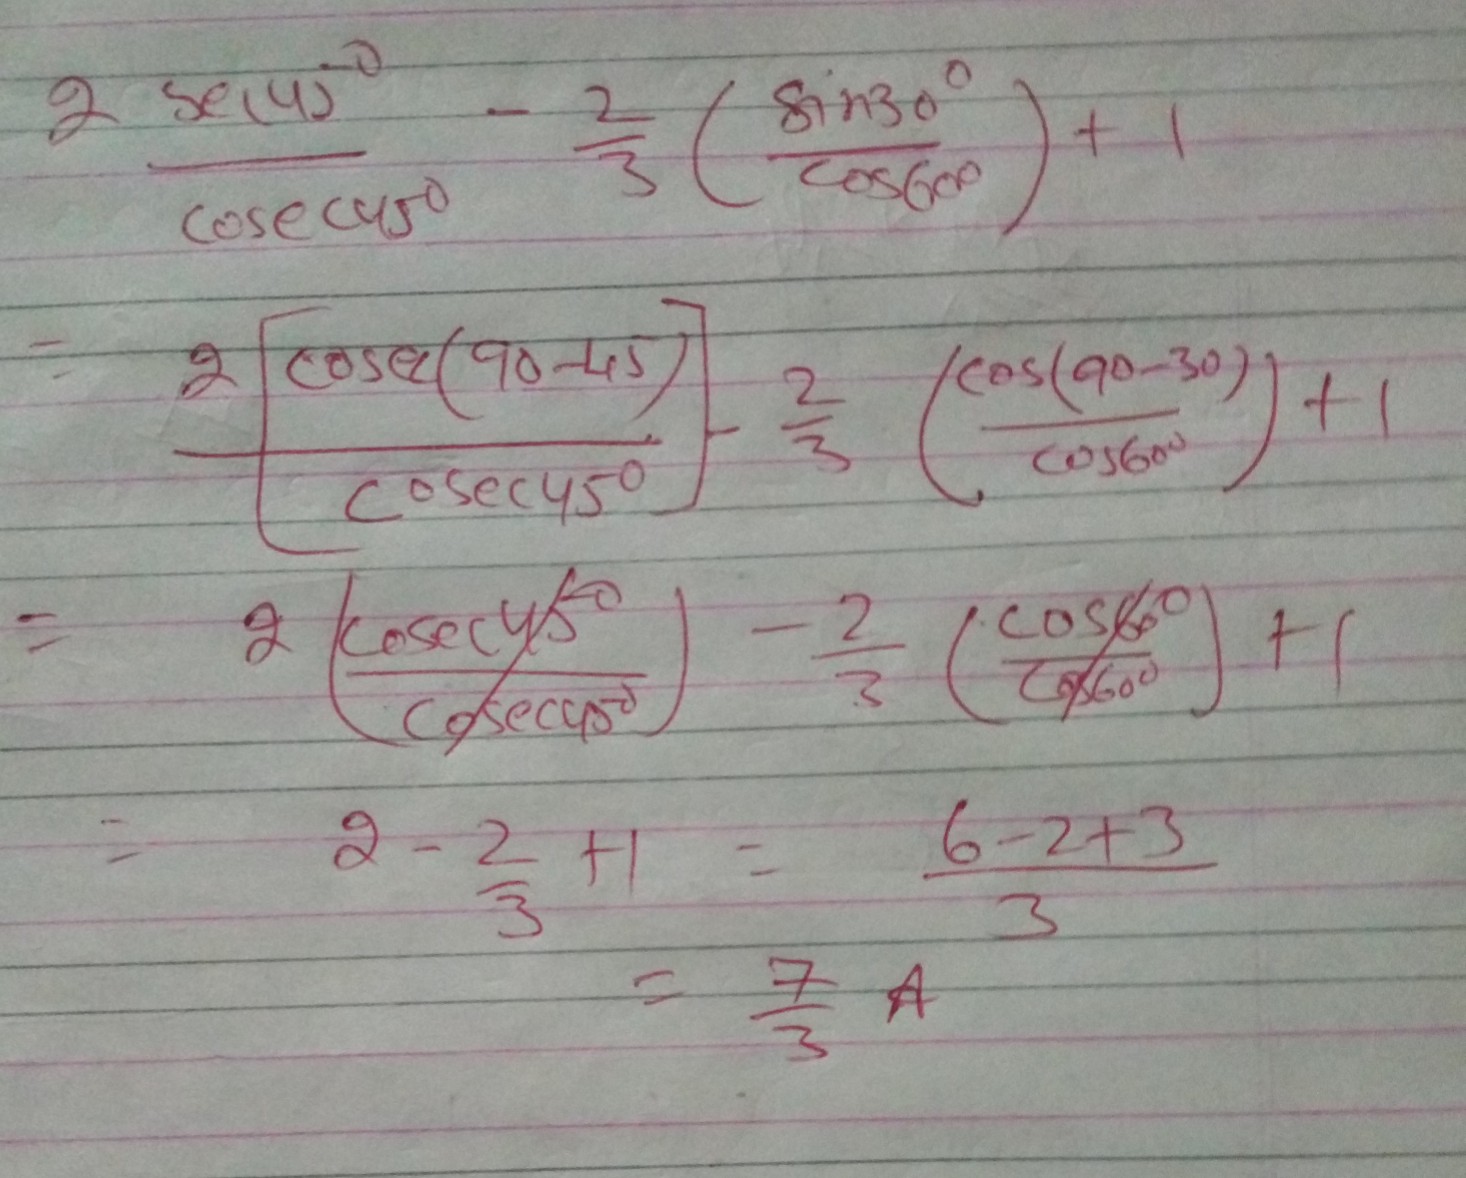 2 sec45⁰/cosec45⁰ - 2/3 (sin30⁰/cos60⁰) + 1
= 2[cosec(90-45)/cosec45⁰] - 2/3 (cos(90-30)/cos60⁰) + 1
= 2(cosec45⁰/cosec45⁰) - 2/3 (cos60⁰/cos60⁰) + 1
= 2 - 2/3 + 1 = 6-2+3/3
= 7/3 A